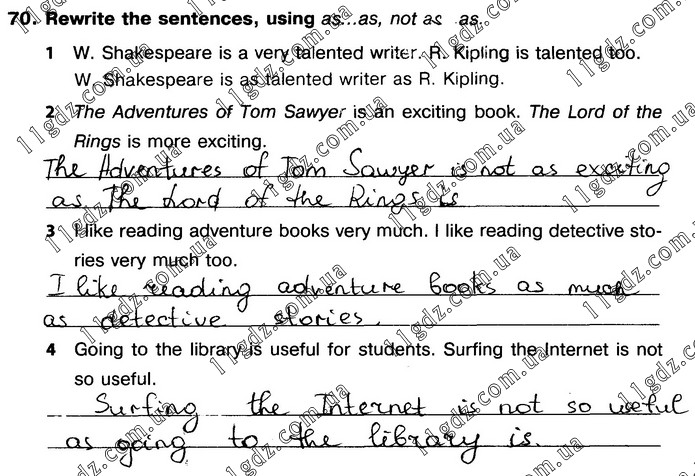 70. Rewrite the sentences, using as...as, not as as.
1 W. Shakespeare is a very talented writer. R. Kipling is talented too.
W. Shakespeare is as talented writer as R. Kipling.
2 The Adventures of Tom Sawyer is an exciting book. The Lord of the
Rings is more exciting.
The Adventures of Tom Sawyer is not as exciting
as The Lord of the Rings is
3 I like reading adventure books very much. I like reading detective sto-
ries very much too.
I like reading adventure books as much
as detective stories.
4 Going to the library is useful for students. Surfing the Internet is not
so useful.
Surfing the Internet is not so useful
as going to the library is.
11gdz.com.ua